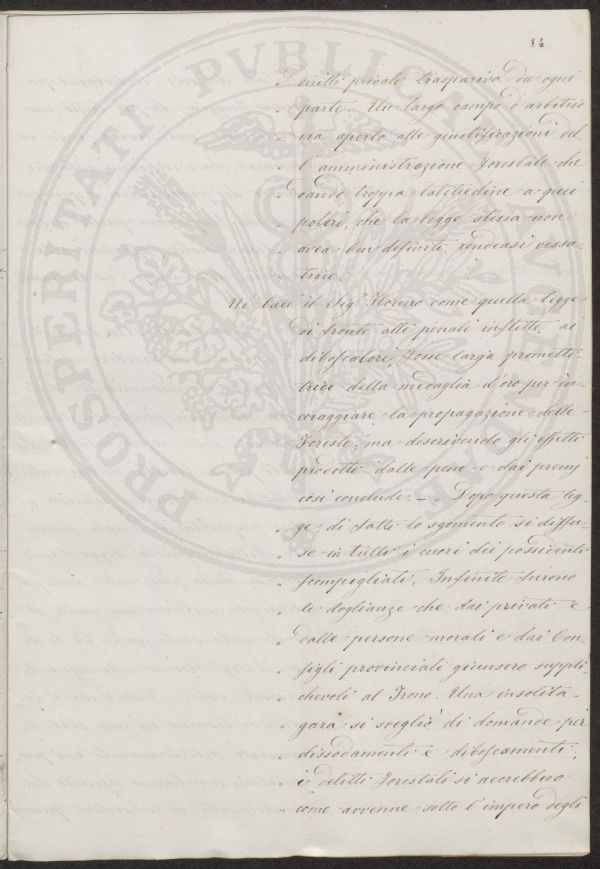 14
PROSPERITATI PVBLICAE AVGENDAE
" diritti privati traspariva da ogni
" parte. Un largo campo d'arbitrio
" era aperto alle giustificazioni ed
" l'amministrazione forestale che
" dando troppa latitudine a quei
" poteri, che la legge stessa non
" avea ben definiti, rendeasi vessa-
" trice.
Nè tace il Sig.r Moreno come quella legge
di fronte alle penali inflitte ai
diboscatori, fosse larga prometti-
trice della medaglia d'oro per in-
coraggiare la propagazione delle
foreste; ma descrivendo gli effetti
prodotti dalle pene e dai premj
così conclude: — " Dopo questa leg-
" ge di fatti lo sgomento si diffu-
" se in tutti i cuori dei possidenti
" scompigliati. Infinite furono
" le doglianze che dai privati e
" dalle persone morali e dai Con-
" sigli provinciali giunsero suppli-
" chevoli al Trono. Una insolita
" gara si svegliò di domande per
" dissodamenti e diboscamenti;
" i delitti forestali si accrebbero
" come avvenne sotto l'impero degli